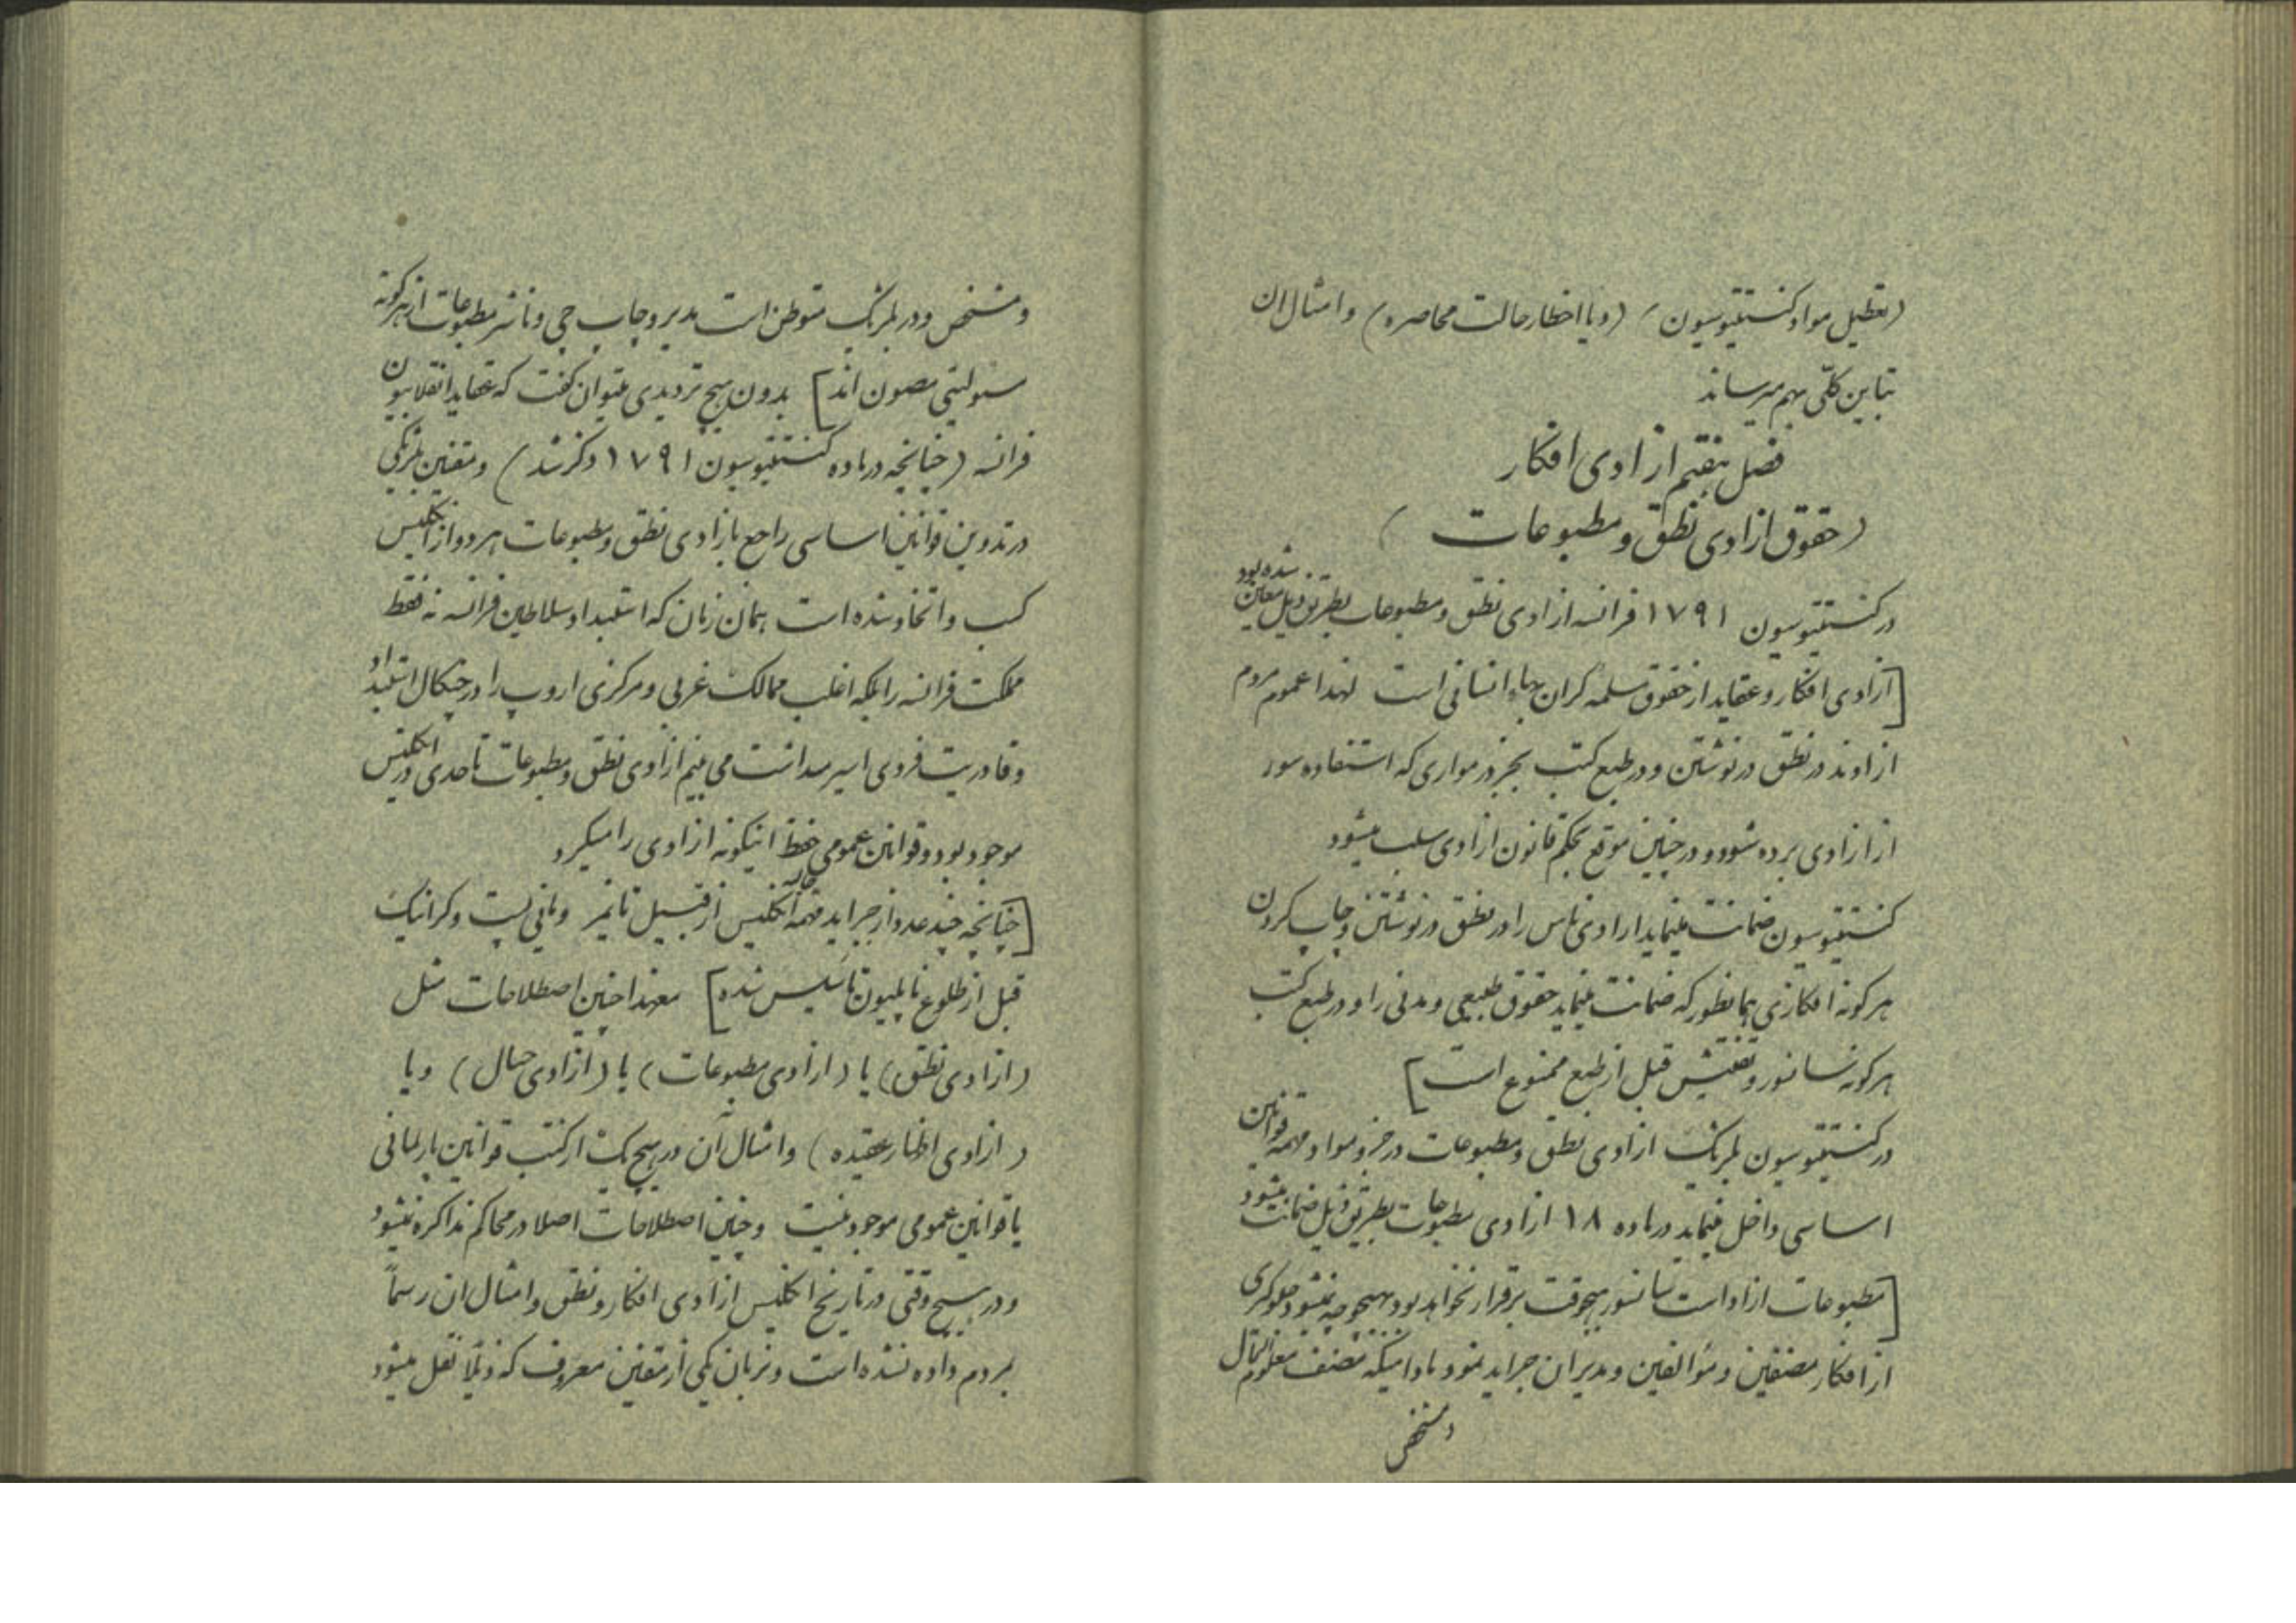 (تعطیل مواد کنستیتیوسیون) (و یا اخطار حالت محاصره) و امثال ان
تباین کلّی بهم میرساند
فصل هفتم ازادی افکار
(حقوق ازادی نطق و مطبوعات)
در کنستیتیوسیون ۱۷۹۱ فرانسه ازادی نطق و مطبوعات بطریق ذیل معین شده بود
[ازادی افکار و عقاید از حقوق مسلمه گران بهاء انسانی است لهذا عموم مردم
ازادند در نطق در نوشتن و در طبع کتب بجز در مواردی که استفاده سوء
از ازادی برده شود و در چنین موقع بحکم قانون ازادی سلب میشود
کنستیتیوسیون ضمانت مینماید ازادی ناس را در نطق در نوشتن و چاپ کردن
هر گونه افکاری همانطور که ضمانت مینماید حقوق طبیعی و مدنی را و در طبع کتب
هر گونه سانسور و تفتیش قبل از طبع ممنوع است]
در کنستیتیوسیون بلژیک ازادی نطق و مطبوعات در جزو مواد مهمه قوانین
اساسی داخل مینماید در ماده ۱۸ ازادی مطبوعات بطریق ذیل ضمانت میشود
[مطبوعات ازاد است سانسور هیچوقت برقرار نخواهد بود بهیچوجه نمیشود جلوگیری
از افکار مصنفین و مؤالفین و مدیران جراید نمود مادامیکه مصنف معلوم الحال
و مشخص
و مشخص و در بلژیک متوطن است مدیر و چاپ چی و ناشر مطبوعات از هر گونه
مسئولیتی مصون اند] بدون هیچ تردیدی میتوان گفت که عقاید انقلابیون
فرانسه (چنانچه در ماده کنستیتیوسیون ۱۷۹۱ ذکر شد) و مقنین بلژیکی
در تدوین قوانین اساسی راجع بازادی نطق و مطبوعات هر دو از انگلیس
کسب و اتخاذ شده است همان زمان که استبداد سلاطین فرانسه نه فقط
مملکت فرانسه را بلکه اغلب ممالک غربی و مرکزی اروپ را در چنگال استبداد
و قادریت فردی اسیر میداشت می بینم ازادی نطق و مطبوعات تا حدی در انگلیس
موجود بود و قوانین عمومی حفظ اینگونه ازادی را میکرد
[چنانچه چند عدد از جراید مهمه انگلیس از قبیل تایمز و مانی پست و کرانیک
قبل از طلوع ناپلیون تأسیس شده] معهذا چنین اصطلاحات مثل
(ازادی نطق) یا (ازادی مطبوعات) یا (ازادی خیال) و یا
(ازادی اظهار عقیده) و امثال آن در هیچ یک از کتب قوانین پارلمانی
یا قوانین عمومی موجود نیست و چنین اصطلاحات اصلا در محاکم مذاکره نمیشود
و در هیچ وقتی در تاریخ انگلیس ازادی افکار و نطق و امثال ان رسماً
بمردم داده نشده است و بزبان یکی از مقنین معروف که ذیلاً نقل میشود